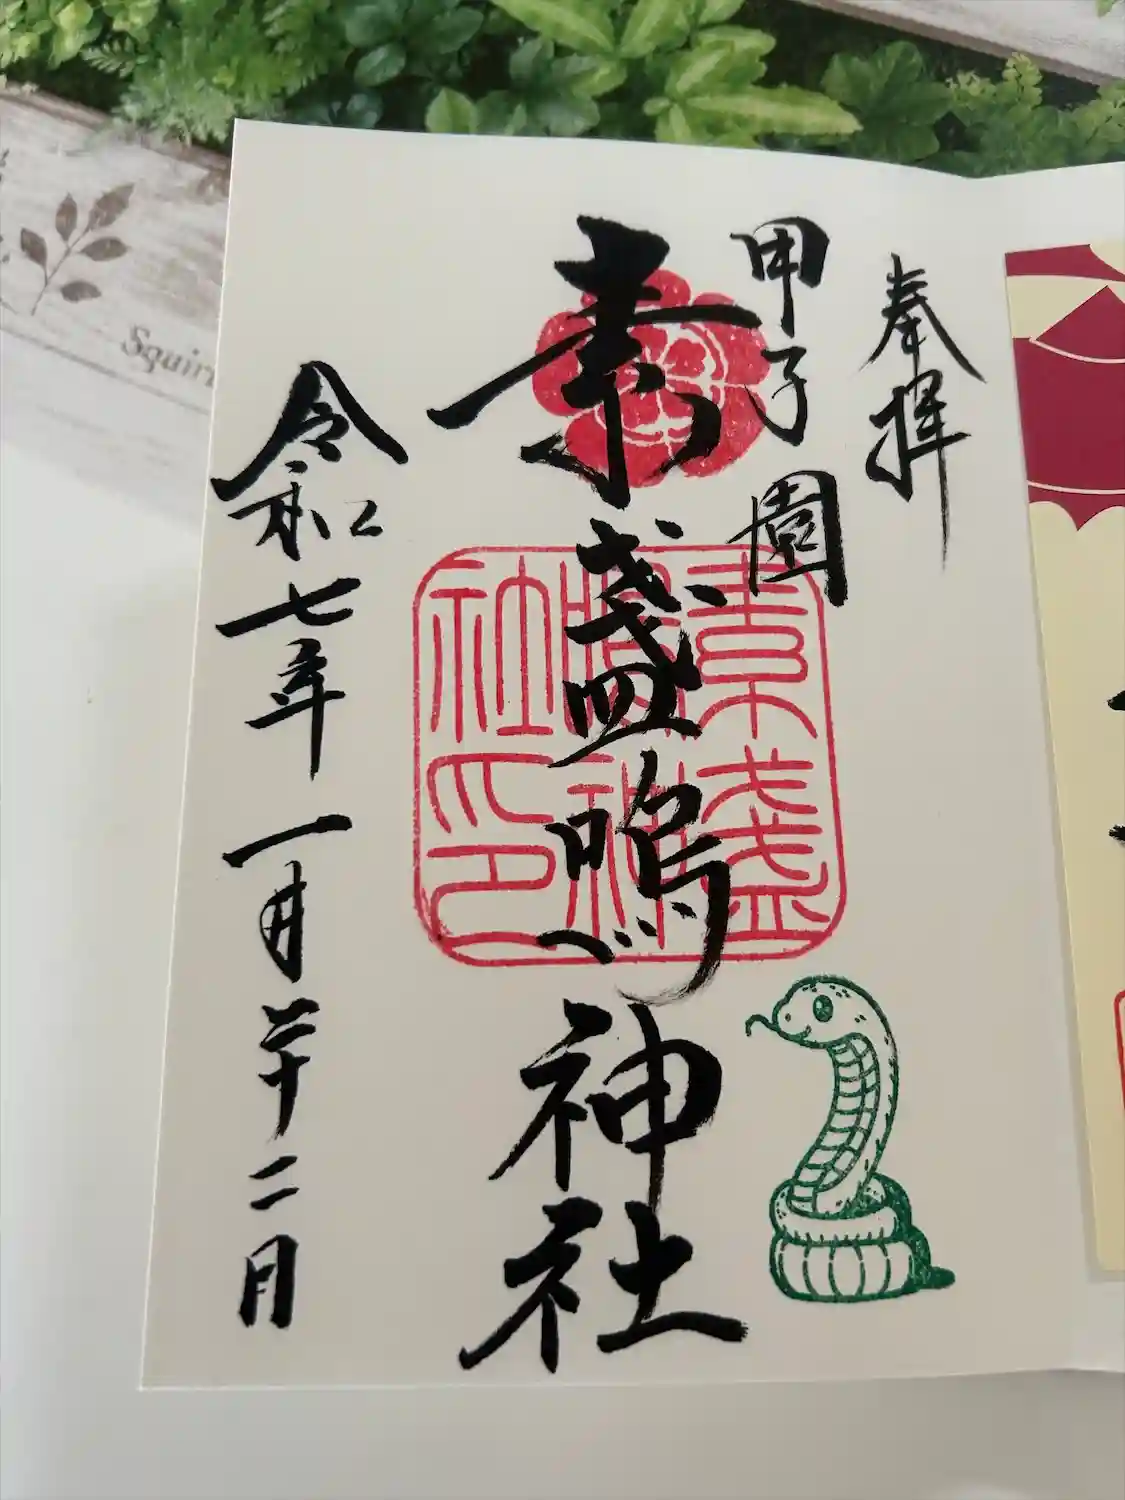 奉拝
甲子園
素盞嗚神社
素盞
嗚神
社印
令和七年一月廿二日
Squirr